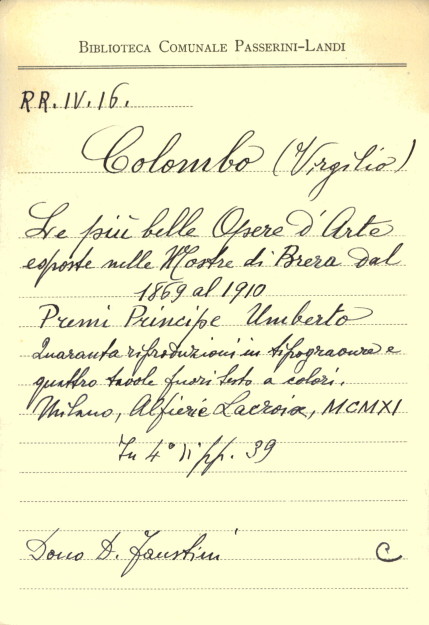 BIBLIOTECA COMUNALE PASSERINI-LANDI
RR.IV.16.
Colombo (Virgilio)
Le più belle Opere d'Arte
esposte nelle Mostre di Brera dal
1869 al 1910
Premi Principe Umberto
Quaranta riproduzioni in tipogravure e
quattro tavole fuori testo a colori.
Milano, Alfieri e Lacroix, MCMXI
In 4° di pp. 39
Dono D. Faustini
C